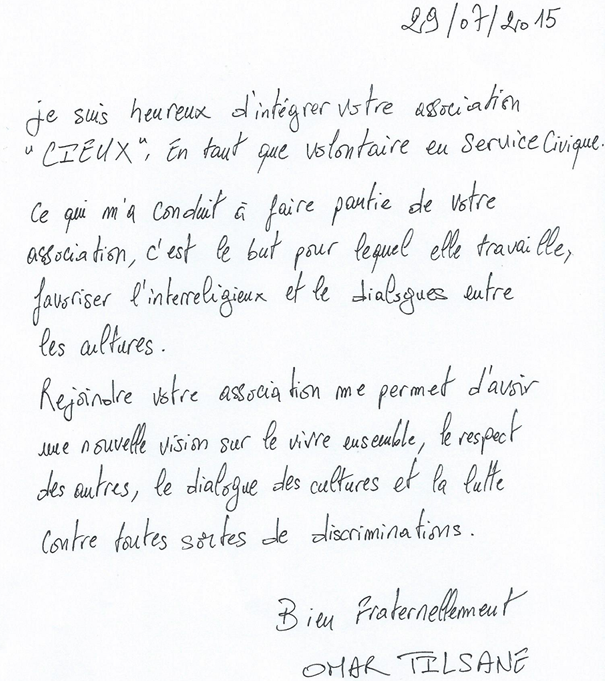 29/07/2015
je suis heureux d'intégrer votre association
"CIEUX", En tant que volontaire en Service Civique.
Ce qui m'a conduit à faire partie de votre
association, c'est le but pour lequel elle travaille,
favoriser l'interreligieux et le dialogues entre
les cultures.
Rejoindre votre association me permet d'avoir
une nouvelle vision sur le vivre ensemble, le respect
des autres, le dialogue des cultures et la lutte
contre toutes sortes de discriminations.
Bien Fraternellement
OMAR TILSANE